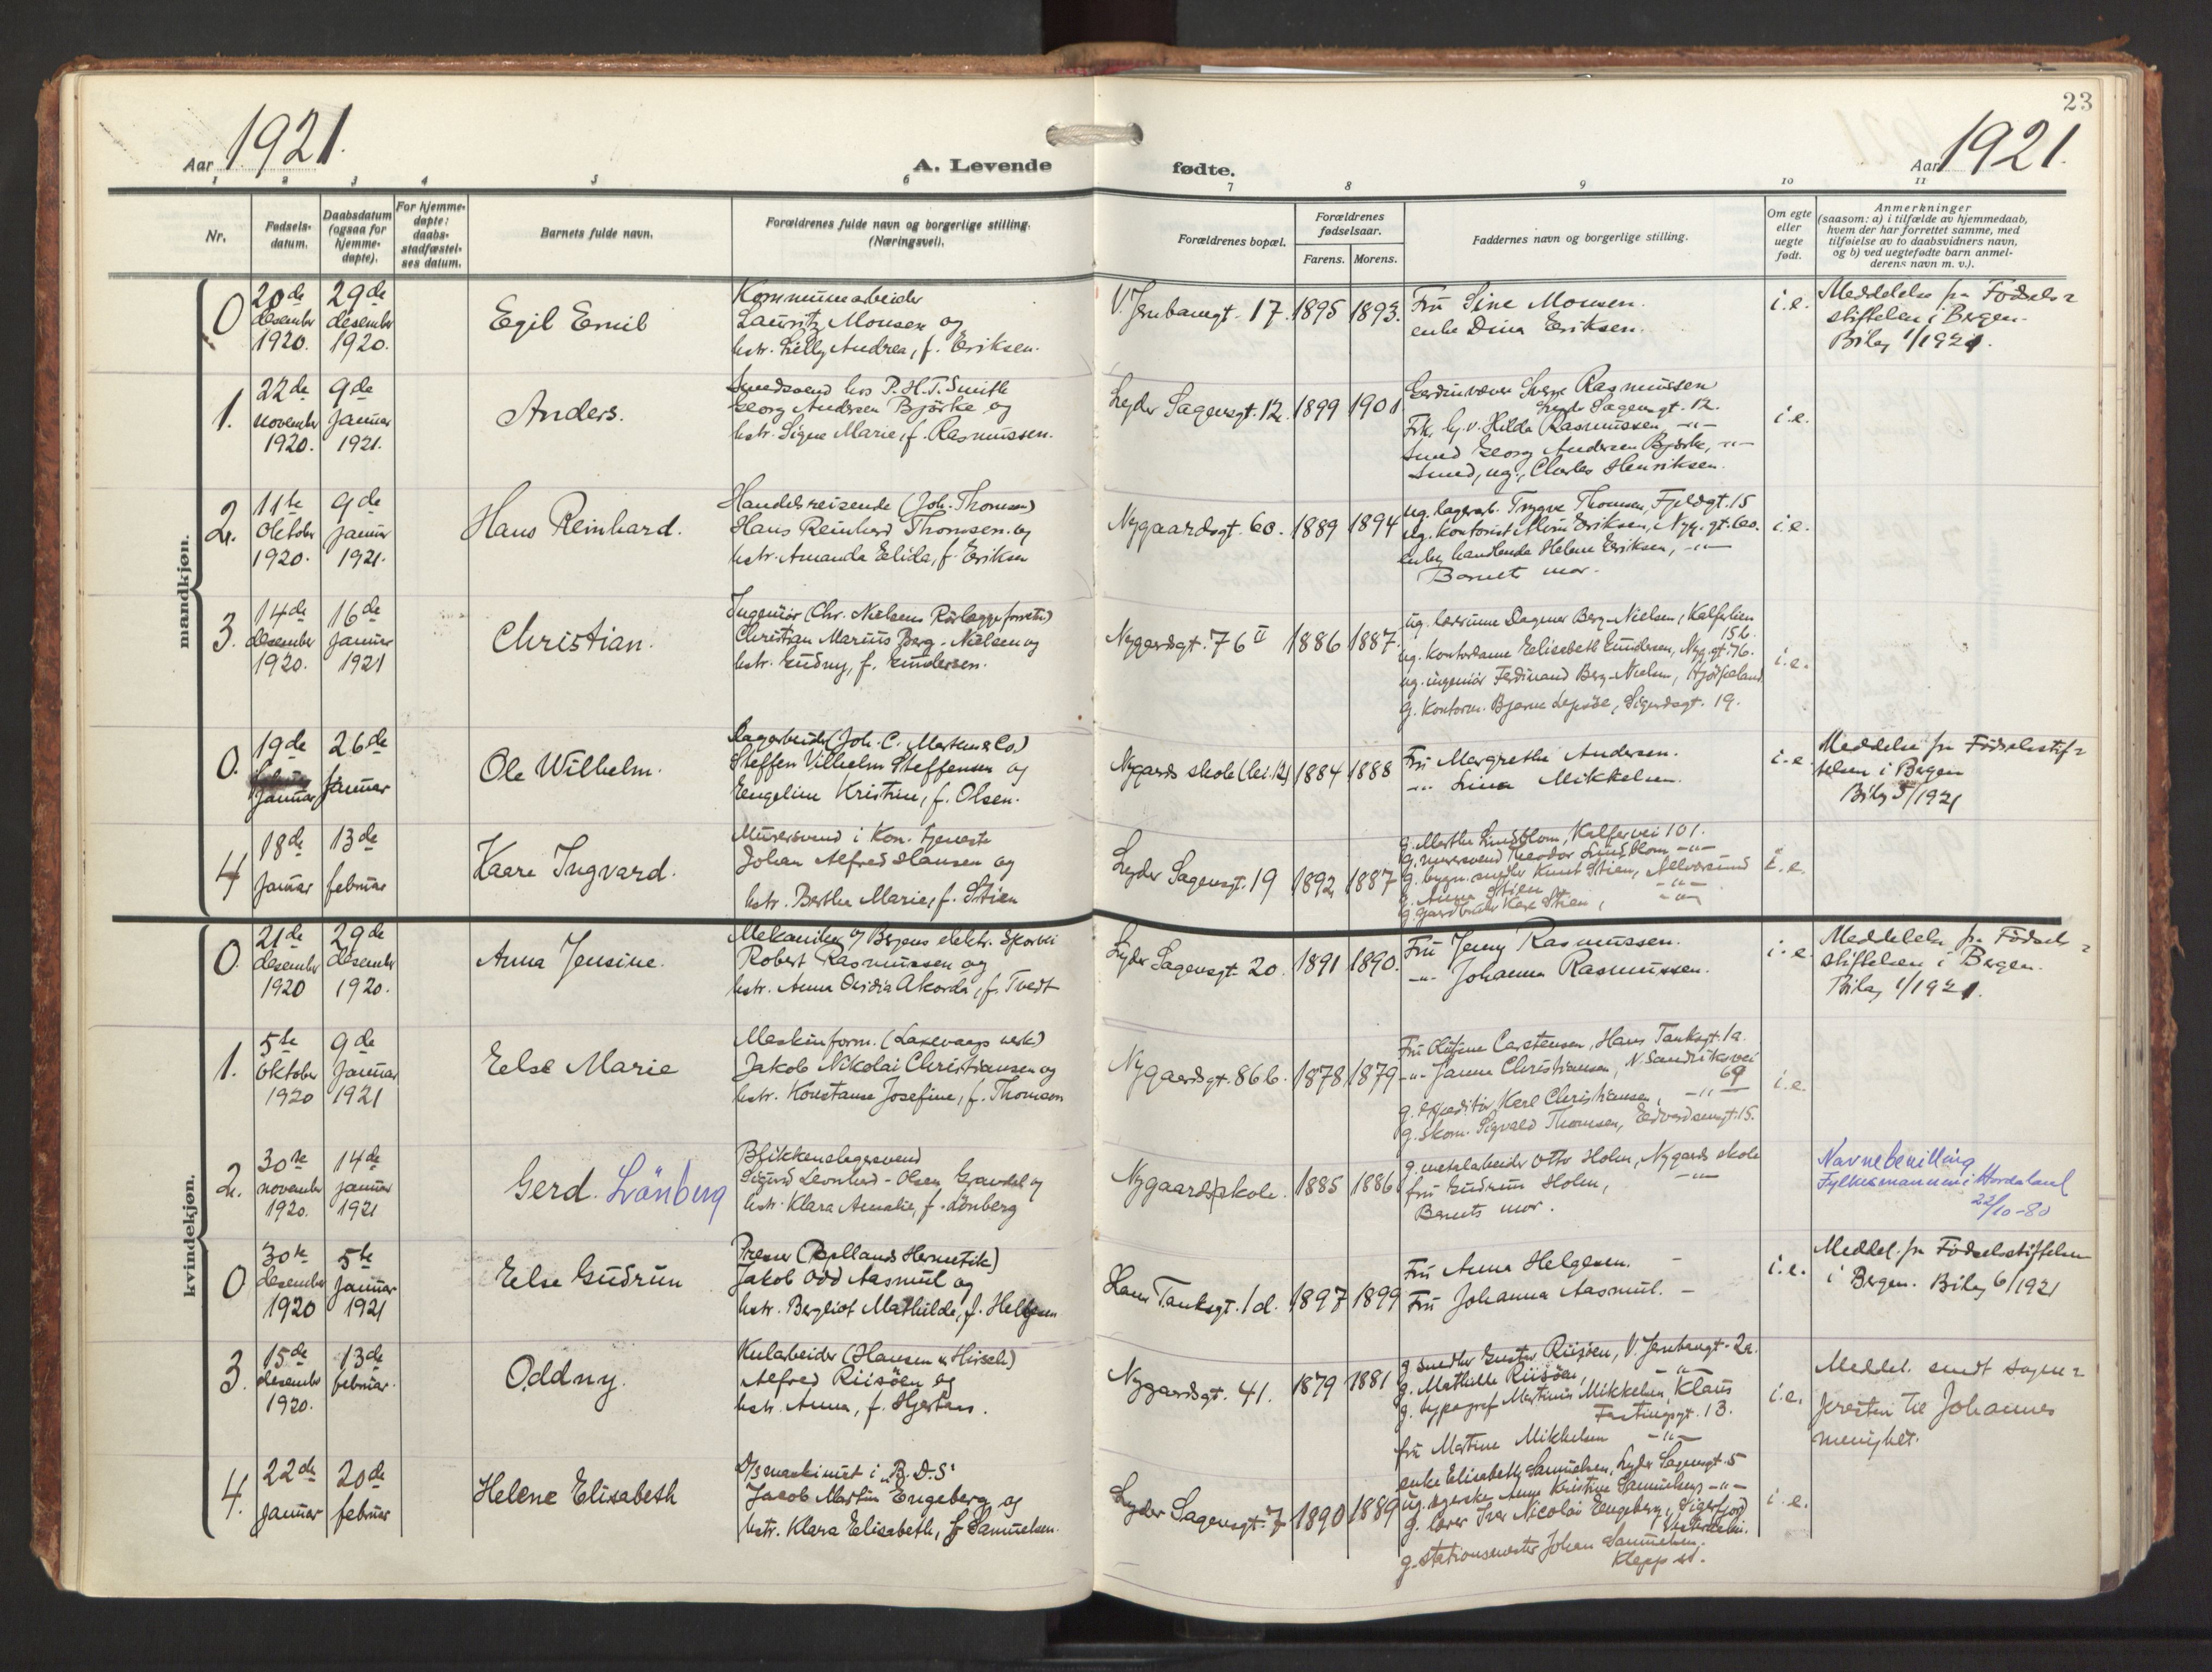 23
Aar 1921.
A. Levende
fødte.
Aar 1921.
1 2 3 4 5 6 7 8 9 10 11
Nr.
Fødsels-
datum.
Daabsdatum
(ogsaa for
hjemme-
døpte).
For hjemme-
døpte:
daabs-
stadfæstel-
ses datum.
Barnets fulde navn.
Forældrenes fulde navn og borgerlige stilling.
(Næringsvei).
Forældrenes bopæl.
Forældrenes
fødselsaar.
Farens. Morens.
Faddernes navn og borgerlige stilling.
Om egte
eller
uegte
født.
Anmerkninger
(saasom: a) i tilfælde av hjemmedaab,
hvem der har forrettet samme, med
tilføielse av to daabsvidners navn,
og b) ved uegtefødte barn anmel-
derens navn m. v.).
mandkjøn.
0
20de
desember
1920.
29de
desember
1920.
Egil Emil
Kommunearbeider
Lauritz Monsen og
hstr. Lilly Andrea, f. Eriksen.
V. Jernbanegt. 17.
1895
1893.
Fru Sine Monsen.
enke Dina Eriksen.
i.e.
Meddelelse fra Fødsels-
stiftelsen i Bergen.
Bilag 1/1921.
1.
22de
november
1920.
9de
Januar
1921.
Anders.
Smedsvend hos P.H.T. Smith
Georg Andersen Björke og
hstr. Signe Marie, f. Rasmussen.
Lyder Sagensgt. 12.
1899
1901.
Rasmussen
Lyder Sagensgt. 12.
Frk. Hilda Rasmussen, -"-
Smed Georg Andersen Bjørke, -"-
Smed, ug., Charles Henriksen.
i.e.
2.
11te
Oktober
1920.
9de
Januar
1921.
Hans Reinhard.
Handelsreisende (Joh. Thomsen)
Hans Reinhard Thomsen og
hstr. Amanda Elida, f. Eriksen
Nygaardsgt. 60.
1889
1894
ug. lagerarb. Trygve Thomsen, Fjeldgt. 15
ug. kontorist Eriksen, Nyg. gt. 60.
enke, handlende Helene Eriksen, -"-
Barnets mor.
i.e.
3.
14de
desember
1920.
16de
Januar
1921
Christian.
Ingeniör (Chr. Nielsens Rørlæggeforretn.)
Christian Marius Berg-Nielsen og
hstr. Gudny, f. Gundersen.
Nygaardsgt. 76 II
1886
1887.
ug. lærerinne Dagmar Berg-Nielsen, Kalfarlien
15 b.
ug. kontordame Elisabeth Gundersen, Nyg. gt. 76.
ug. ingeniör Ferdinand Berg-Nielsen,
g. kontorm. Bjarne Lepsöe, Sigurdsgt. 19.
i.e.
0.
19de
Januar
26de
Januar
Ole Wilhelm.
Lagerarbeider (Joh. C. Martens & Co.)
Steffen Vilhelm Steffensen og
Engeline Kristine, f. Olsen.
Nygards skole (lei. 12)
1884
1888
Fru Margrethe Andersen.
-"- Lina Mikkelsen.
i.e.
Meddelse fra Fødselsstif-
telsen i Bergen
Bilag 5/1921
4
18de
Januar
13de
februar
Kaare Ingvard.
Murersvend i Kom. tjeneste
Johan Alfred Hansen og
hstr. Berthe Marie, f. Stien
Lyder Sagensgt. 19
1892
1887
g. Martha Lindblom, Kalfarvei 101.
g. murersvend Theodor Lindblom -"-
g. bygn.snedker Knut Stien, Alversund
g. Anna Stien -"-
g. gaardbruker Karl Stien, -"-
i.e.
kvindekjøn.
0.
21de
desember
1920
29de
desember
1920.
Anna Jensine.
Mekaniker v/ Bergens elektr. Sporvei
Robert Rasmussen og
hstr. Anna Ovidia Akorda, f. Tvedt
Lyder Sagensgt. 20.
1891
1890.
Fru Jenny Rasmussen.
-"- Johanna Rasmussen.
i.e.
Meddelelse fra Fødsels-
stiftelsen i Bergen.
Bilag 1/1921.
1.
5te
oktober
1920
9de
Januar
1921
Else Marie
Maskinform. (Laxevaags verk)
Jakob Nikolai Christiansen og
hstr. Konstanse Josefine, f. Thomsen
Nygaardsgt. 86b.
1878
1879
Fru Carstensen, Hans Tanksgt. 1a.
-"- Janna Christiansen, N. Sandviksvei
69
g. expeditör Karl Christiansen, -"-
g. skom. Sigvald Thomsen, Edvardsensgt. 15.
i.e.
2.
30te
november
1920.
14de
januar
1921
Gerd. Lönberg
Blikkenslagersvend
Sigurd Leonhard-Olsen Grandal og
hstr. Klara Amalie, f. Lönberg
Nygaardsskole.
1885
1886
g. metalarbeider Otto Holm, Nygards skole
fru Gudrun Holm, -"-
Barnets mor.
Navnebevilling
Fylkesmannen i Hordaland
22/10-80
0
30te
desember
1920
5te
Januar
1921
Else Gudrun
Presser (Hermetik)
Jakob Odd Aasmul og
hstr. Bergliot Mathilde, f. Helgesen
Hans Tanksgt. 1d.
1897
1899
Fru Anna Helgesen. -
Fru Johanna Aasmul. -
i.e.
Meddel. fra Fødselsstiftelsen
i Bergen. Bilag 6/1921
3.
15de
desember
1920.
13de
februar.
Oddny.
Kularbeider (Hansen & Hirsch)
Alfred Riisöen og
hstr. Anna, f. Hjertaas.
Nygaardsgt. 41.
1879
1881
g. snedker Gustav Riisöen, V. Jernbanegt. 2a.
g. Mathilde Riisöen, -"-
g. typograf Martinus Mikkelsen Klaus
Fastingsgt. 13.
fru Martine Mikkelsen -"-
i.e.
Meddel. sendt sogne-
presten til Johannes
menighet.
4.
22de
Januar
20de
februar
Helene Elisabeth
D/S maskinist i "B.D.S"
Jacob Martin Engeberg og
hstr. Klara Elisabeth, f. Samuelsen.
Lyder Sagensgt. 7
1890
1889
enke Elisabeth Samuelsen, Lyder Sagensgt. 5
ug. Anne Kristine Samuelsen -"-
g. lærer Iver Nicolai Engeberg, Sigerfjord
Vesteraalen.
g. stationsmester Johan Samuelsen.
Klepp st.
i.e.